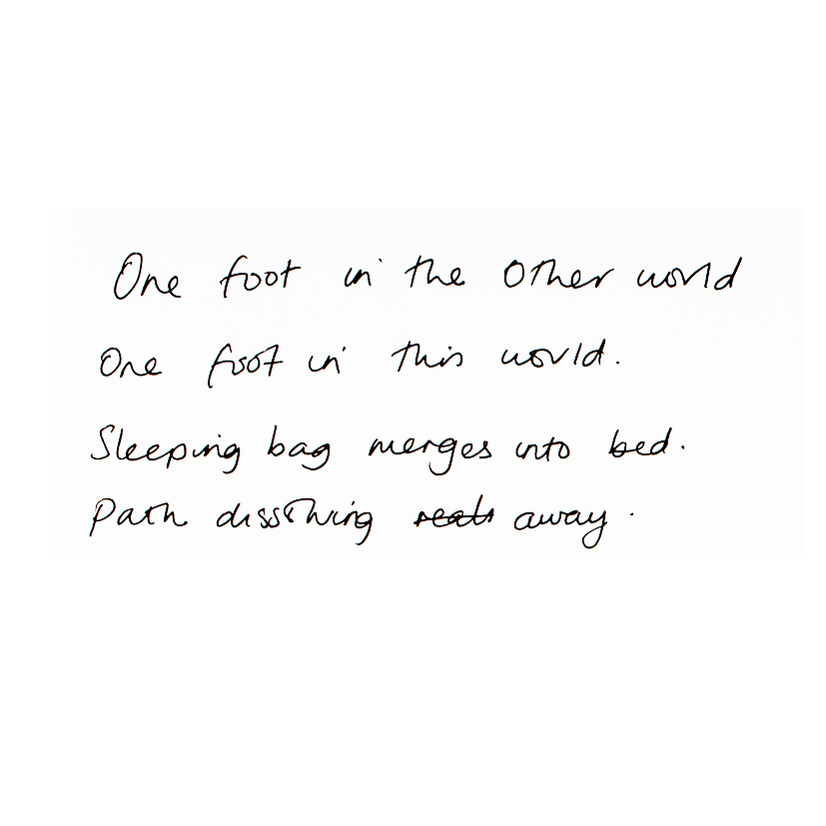 One foot in the other world
One foot in this world.
Sleeping bag merges into bed.
Path dissolving away.